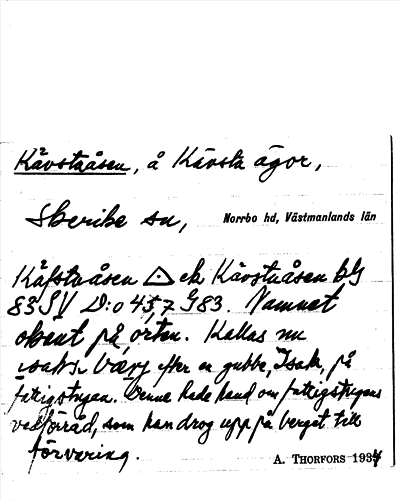 Kävstaåsen, å Kävsta ägor,
Skerike sn, Norrbo hd, Västmanlands län
Käfstaåsen ek Kävstaåsen blj
83 SV D:o 45,7 G83. Namnet
okänt på orten. Kallas nu
isaks bärj efter en gubbe, Isak, på
fatigstugan. Denne hade hand om fattigstugans
vedförråd, som han drog upp på berget till
förvaring.
A. THORFORS 1934